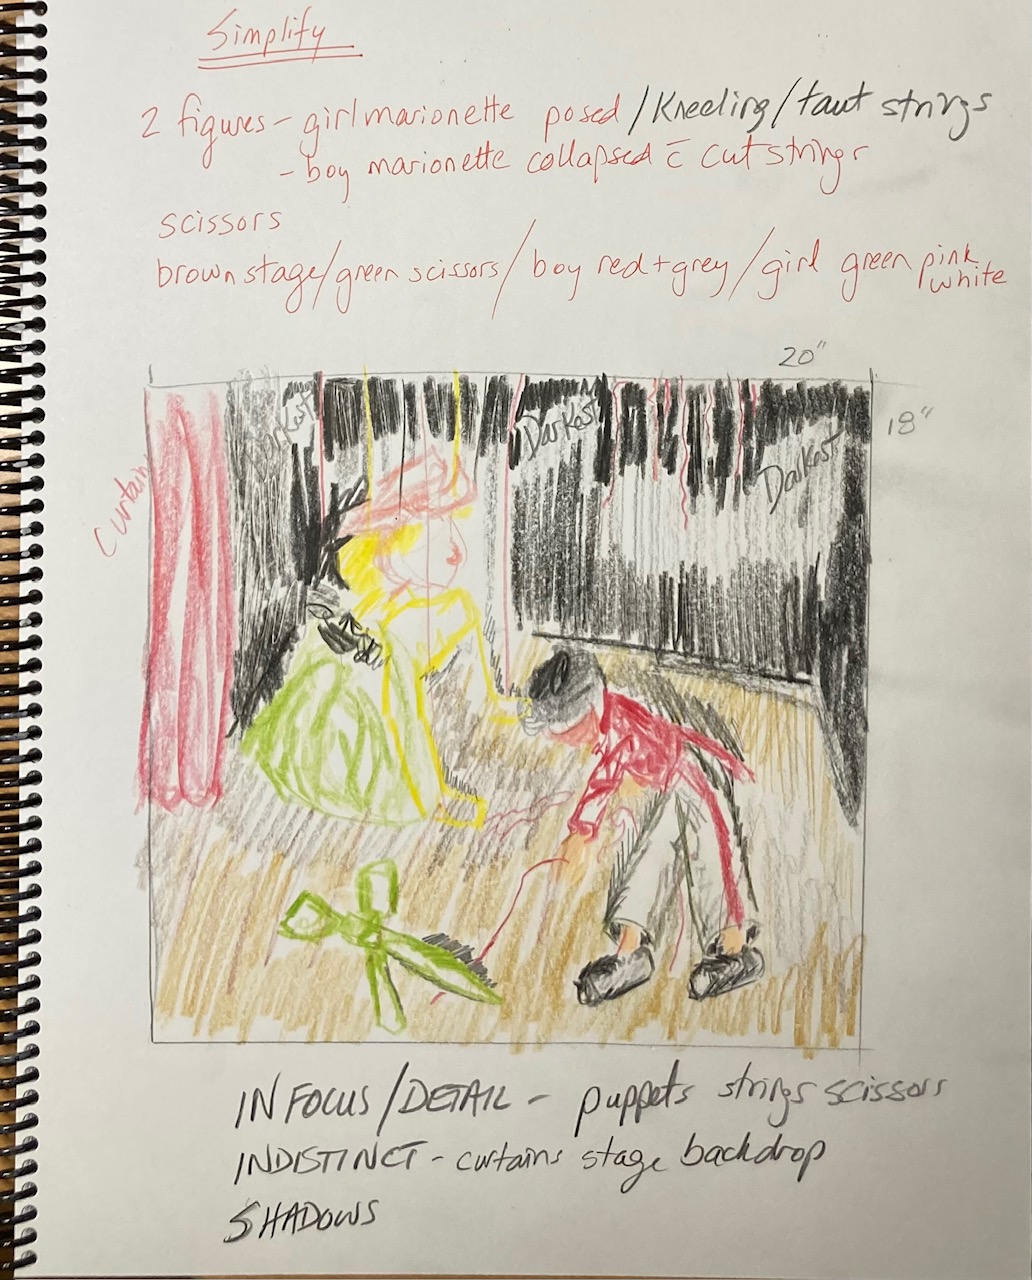 Simplify
2 figures - girl marionette posed / Kneeling / taut strings
- boy marionette collapsed c̄ cut strings
scissors
brown stage / green scissors / boy red + grey / girl green pink white
20"
18"
Darkest
Darkest
Darkest
Curtain
IN FOCUS / DETAIL - puppets strings scissors
INDISTINCT - curtains stage backdrop
SHADOWS